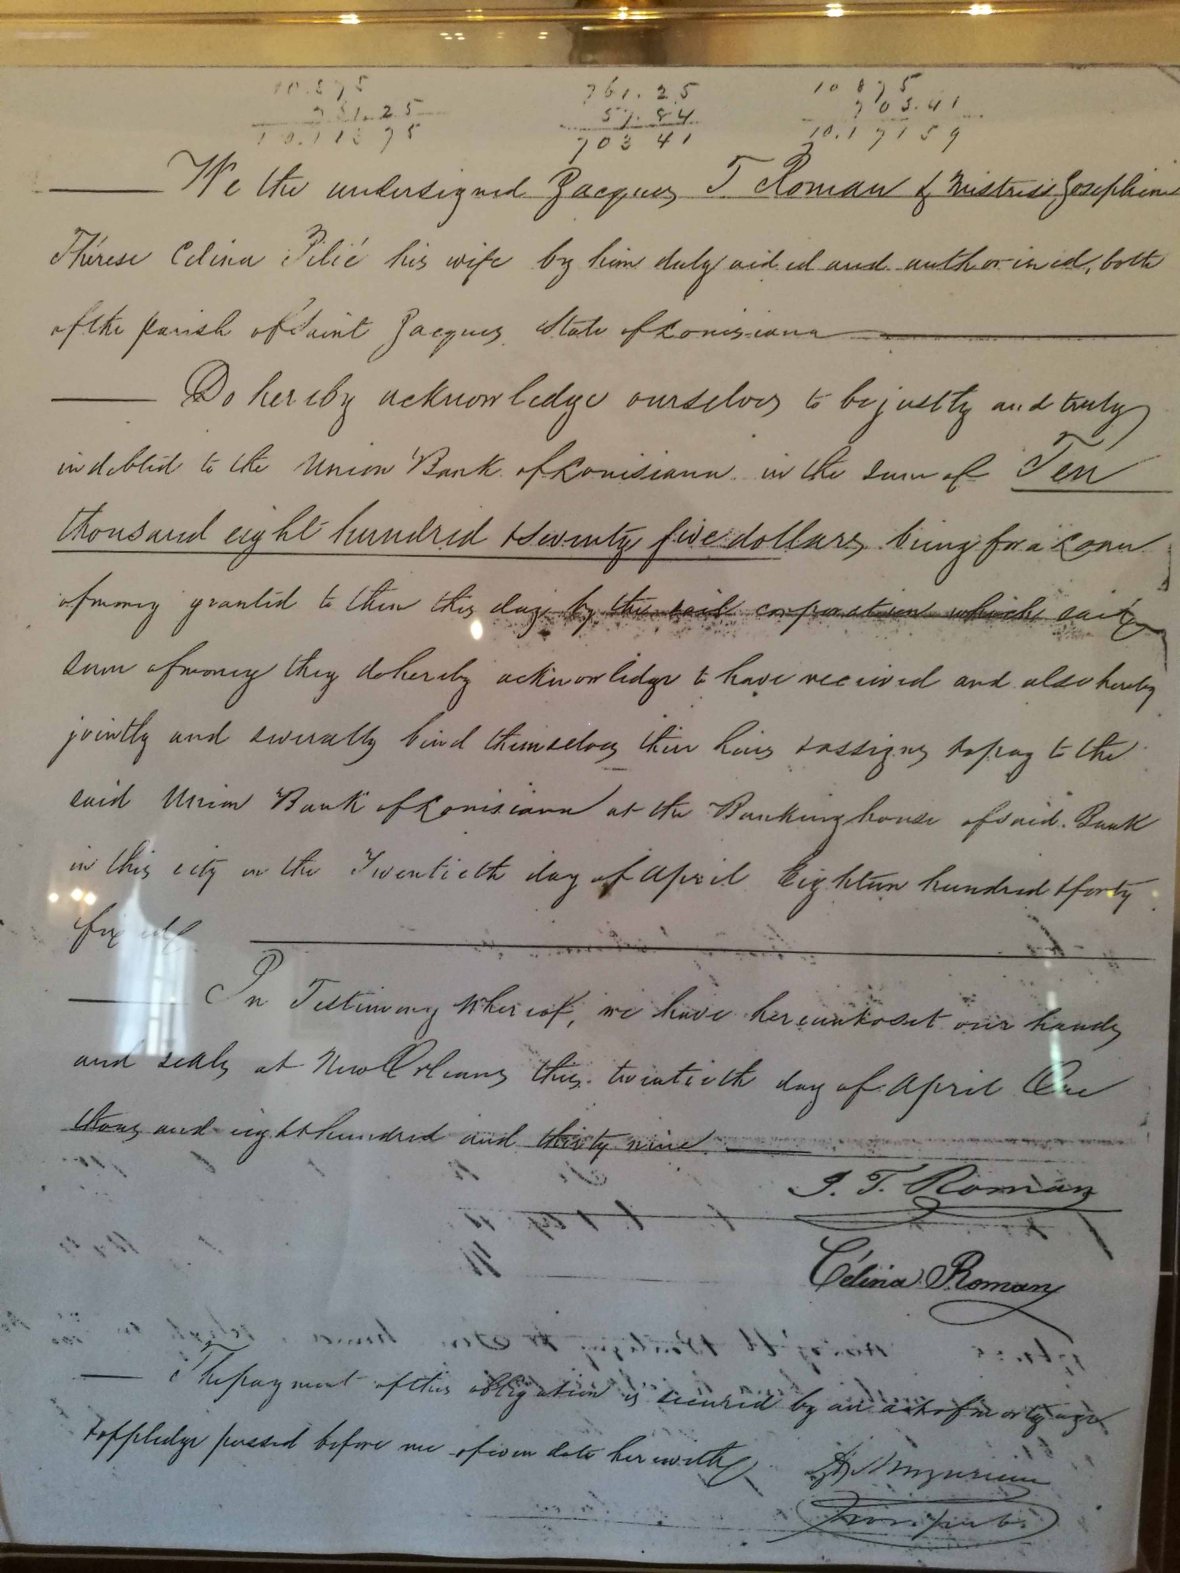 10.875 761.25 10 875
761.25 57.84 703.41
10.11375 703 41 10.17159
We the undersigned Jacques T Roman & Mistress Josephine
Thérese Celina Pilié his wife by him duly aided and authorized, both
of the parish of Saint Jacques State of Louisiana
Do hereby acknowledge ourselves to be justly and truly
indebted to the Union Bank of Louisiana in the sum of Ten
thousand eight hundred & seventy five dollars, being for a Loan
of money granted to them this day by the said corporation which said
sum of money they do hereby acknowledge to have received and also hereby
jointly and severally bind themselves their heirs & assigns to pay to the
said Union Bank of Louisiana at the Banking house of said Bank
in this city on the Twentieth day of April Eighteen hundred & forty
In Testimony whereof, we have hereunto set our hands
and seals at New Orleans this twentieth day of April One
thousand eight hundred and thirty nine
J. T. Roman
Célina Roman
The payment of this obligation is secured by an act of mortgage
& of pledge passed before me of even date herewith
Not. pub.